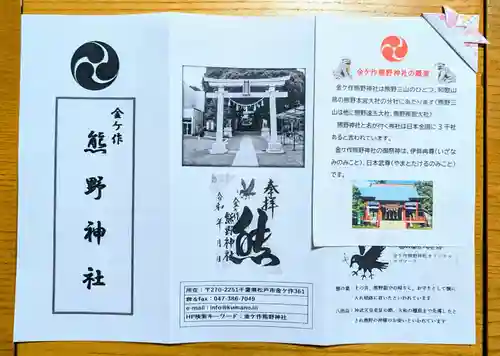 金ケ作
熊野神社
奉拝
金ケ作
熊野神社
令和 年 月 日
熊
所在：〒270-2251千葉県松戸市金ケ作361
email：info@kumano.iii
HP検索キーワード：金ケ作熊野神社
金ケ作熊野神社の概要
金ケ作熊野神社は熊野三山のひとつ、和歌山
県の熊野本宮大社の分社に当たります（熊野三
山は他に熊野速玉大社、熊野那智大社）
熊野神社と名が付く神社は日本全国に３千社
あると言われています。
金ケ作熊野神社の御祭神は、伊弉冉尊（いざな
みのみこと）、日本武尊（やまとたけるのみこと）
です。
金ケ作熊野神社オリジナル